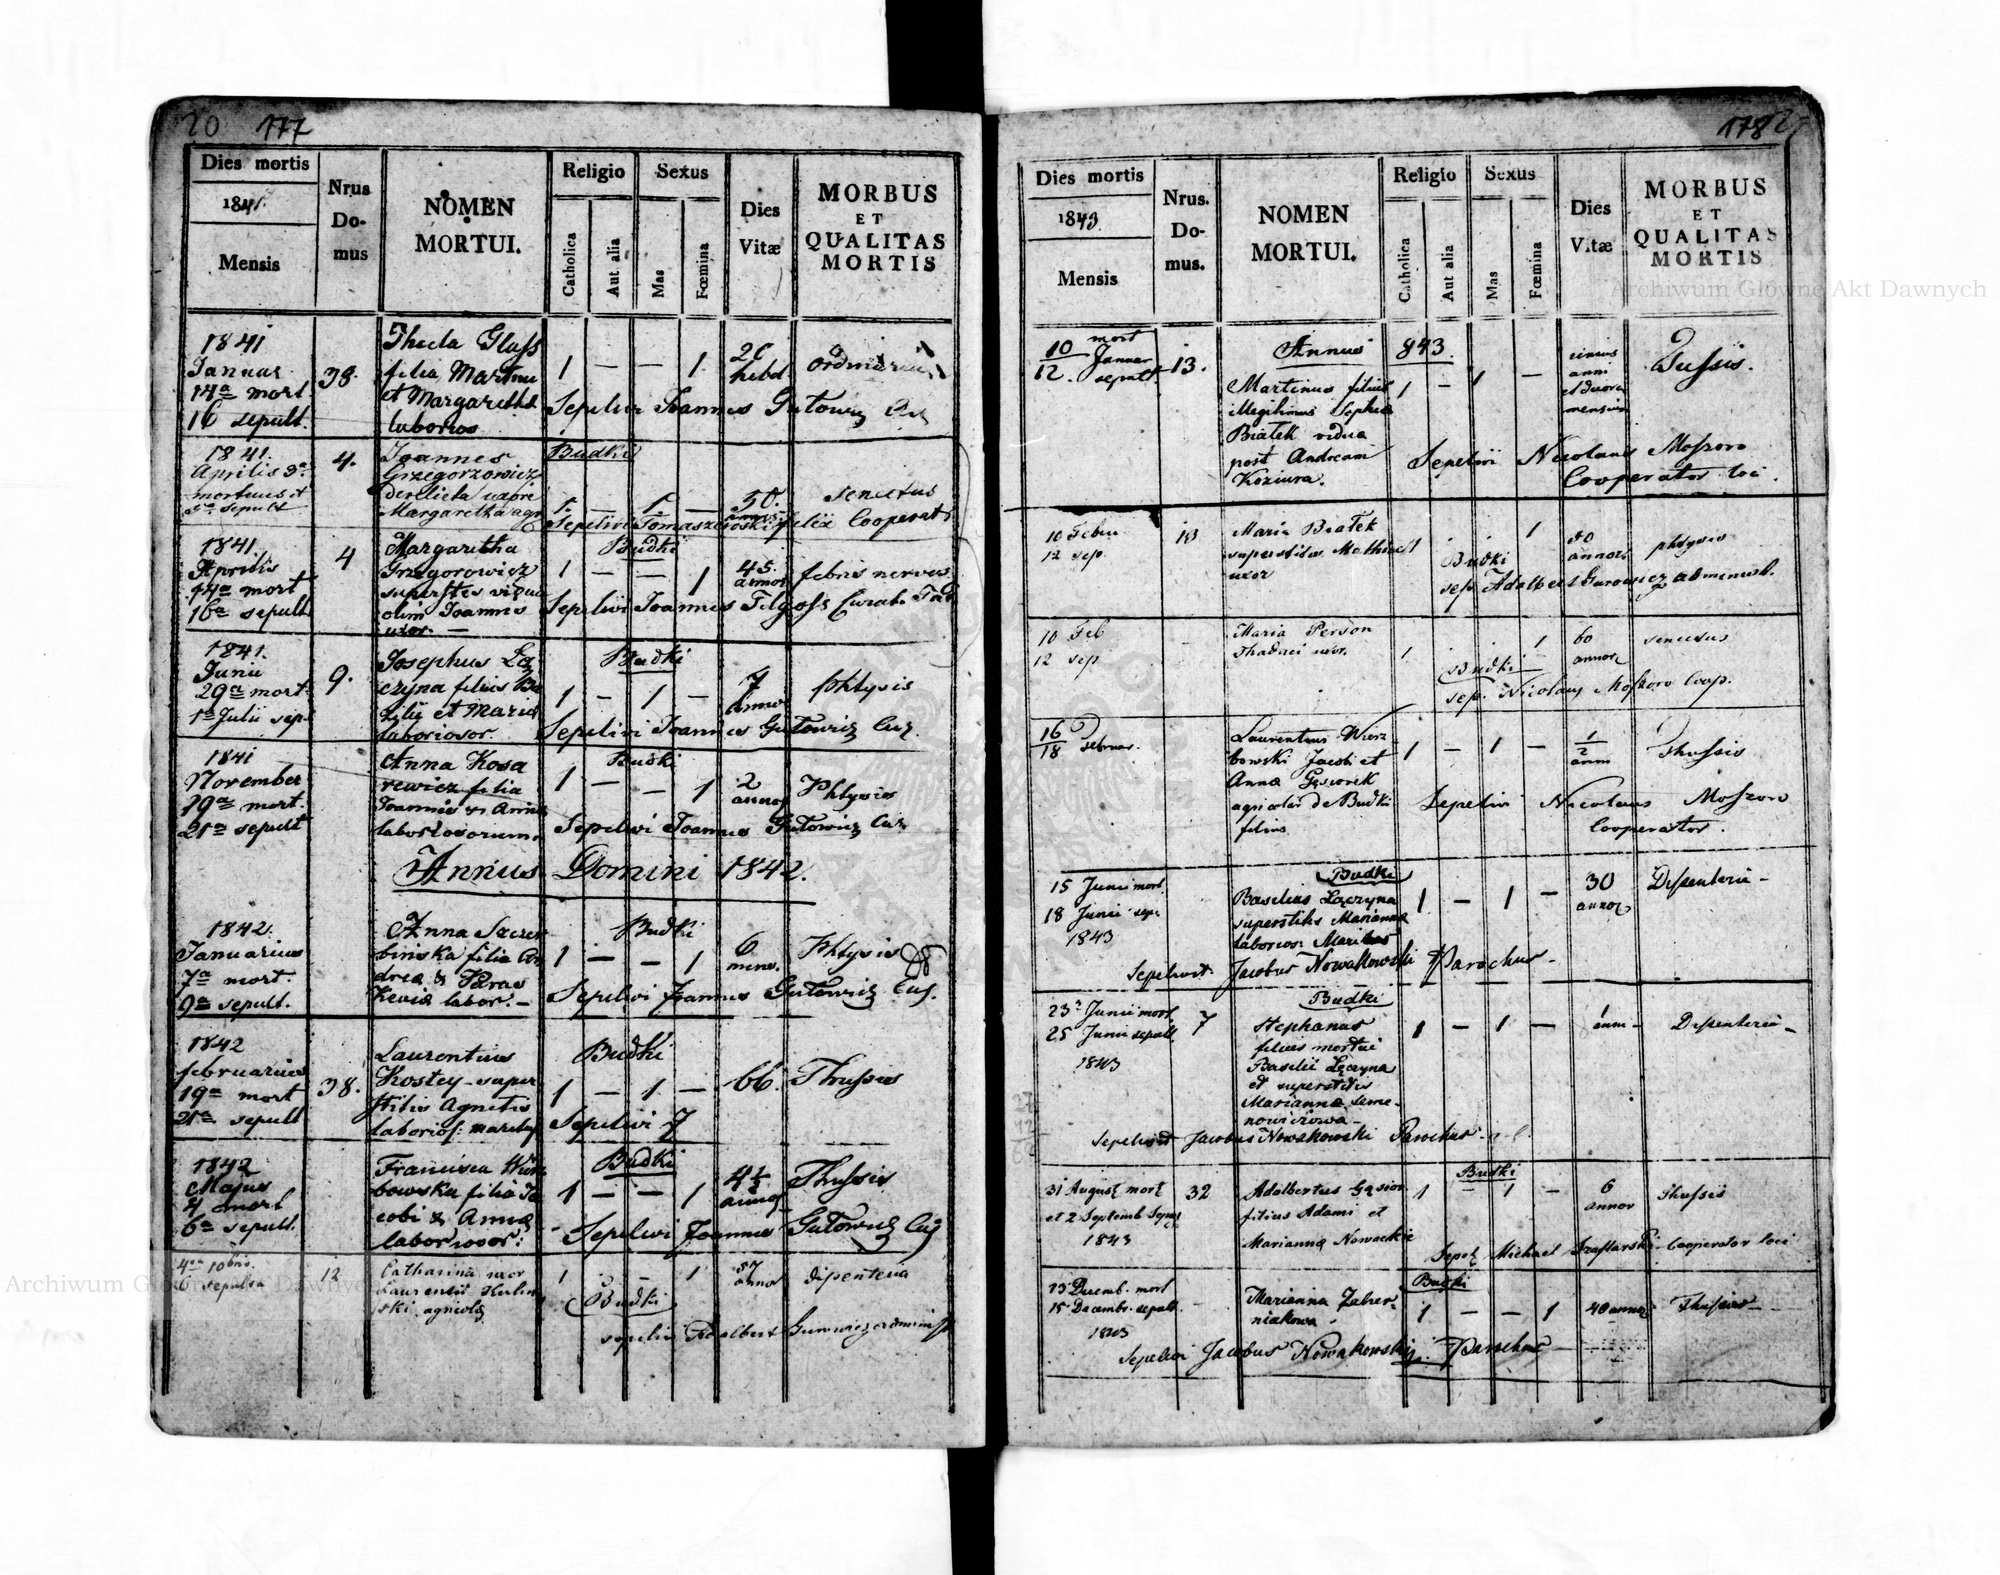 20 177
Dies mortis
1841.
Mensis
Nrus
Do-
mus
NOMEN
MORTUI.
Religio
Catholica
Aut alia
Sexus
Mas
Fœmina
Dies
Vitæ
MORBUS
ET
QUALITAS
MORTIS
1841
Januar
14a mort.
16 sepult.
38.
Thecla Glass
filia Martini
et Margaretha
laborios
1 — — 1
hebd.
Sepelivi Joannes Gutowicz
1841.
Aprilis 3a
mortuus et
5a sepult
4.
Joannes
Grzegorzowicz
derelicta uxore
Margaretha agr
Budki
1 — 1 —
50.
annor.
senectus
Sepelivi Tomaszewski felix Cooperat.
1841.
Aprilis
14a mort
16a sepult
4
Margaretha
Grzegorowicz
superstes vidua
olim Joannis
uxor. —
Budki
1 — — 1
45.
annor
febris nervos
Sepelivi Joannes Felgoss Curat.
1841.
Junii
29a mort.
1a Julii sep.
9.
Josephus Łą
czyna filius Ba
zylii et Maria
laboriosor.
Budki
1 — 1 —
7
annor
phtysis
Sepelivi Joannes Gutowicz
1841
November
19a mort.
21a sepult
Anna Kosa
rewicz filia
Joannis & Anna
laboriosorum.
Budki
1 — 1
2
annor
Phtysis
Sepelivi Joannes Gutowicz
Annus Domini 1842.
1842.
Januarius
7a mort.
9a sepult.
Anna Szczer
bińska filia An
drea & Paras
kevia labor. —
Budki
1 — — 1
6
mens.
Phtysis
Sepelivi Joannes Gutowicz
1842
februarius
19a mort
21a sepult
38.
Laurentius
Kostey super
stitis Agnetis
laborios: maritus
Budki
1 — 1 —
66.
Thussis
Sepelivi
1842
Majus
4 mort
6a sepult.
Francisca Wierz
bowska filia Ja
cobi & Anna
laboriosor:
Budki
1 — — 1
4½
annor
Thussis
Sepelivi Joannes Gutowicz
4a 10bris.
6 sepulta
12
Catharina uxor
Laurentii Kulin
ski agricola
1 — — 1
Budki
57
annor
dipenteria
sepelivi Adalbert Gurowicz administ
178
Dies mortis
1843.
Mensis
Nrus.
Do-
mus.
NOMEN
MORTUI.
Religio
Catholica
Aut alia
Sexus
Mas
Fœmina
Dies
Vitæ
MORBUS
ET
QUALITAS
MORTIS
Annus 843.
10 mort
Januar
12. sepult
13.
Martinus filius
illegitimus Sophia
Białek vidua
post Andream
Koziura.
1 — 1 —
unius
anni
et duorum
mensium
Tussis.
Sepelivi Nicolaus Moszoro
Cooperator loci
10 Febru
12 sep.
13
Maria Białek
superstitis Mathiae
uxor
1 1
Budki
40
annor.
phtysis
sep. Adalbert Gurowicz administ.
10 Feb
12 sep
Maria Person
Thadaei uxor.
1 1
Budki
60
annor
senectus
sep. Nicolaus Moszoro Coop.
16
18 Februar.
Laurentius Wierz
bowski Jacobi et
Anna Gąsiorek
agricolar de Budki
filius
1 — 1 —
1
2
anni
Thussis
Sepelivi Nicolaus Moszoro
Cooperator.
15 Junii mort.
18 Junii sep.
1843
Budki
Basilius Łączyna
superstitis Marianna
laborios: Maritus
1 — 1 —
30
annor
Dysenteria —
Sepelivit Jacobus Nowakowski Parochus —
23a Junii mort.
25 Junii sepult
1843
7
Budki
Stephanus
filius mortui
Basilii Łączyna
et superstitis
Marianna Seme-
nowiczowa —
1 — 1 —
1
anni —
Dysenteria —
Sepelivit Jacobus Nowakowski Parochus
31 August mort
et 2 Septemb Sepul
1843
32
Adalbertus Gąsior
filius Adami et
Marianna Nowackie
Budki
1 — 1 —
6
annor
Thussis
Sepel. Michael Szaflarski Cooperator loci
13 Decemb. mort
15 Decembr. sepult.
1843
Marianna Zaher-
niakowa.
Budki
1 — — 1
40 annor
Thussis —
Sepelivi Jacobus Nowakowski Parochus —
Archiwum Główne Akt Dawnych
Archiwum Główne Akt Dawnych